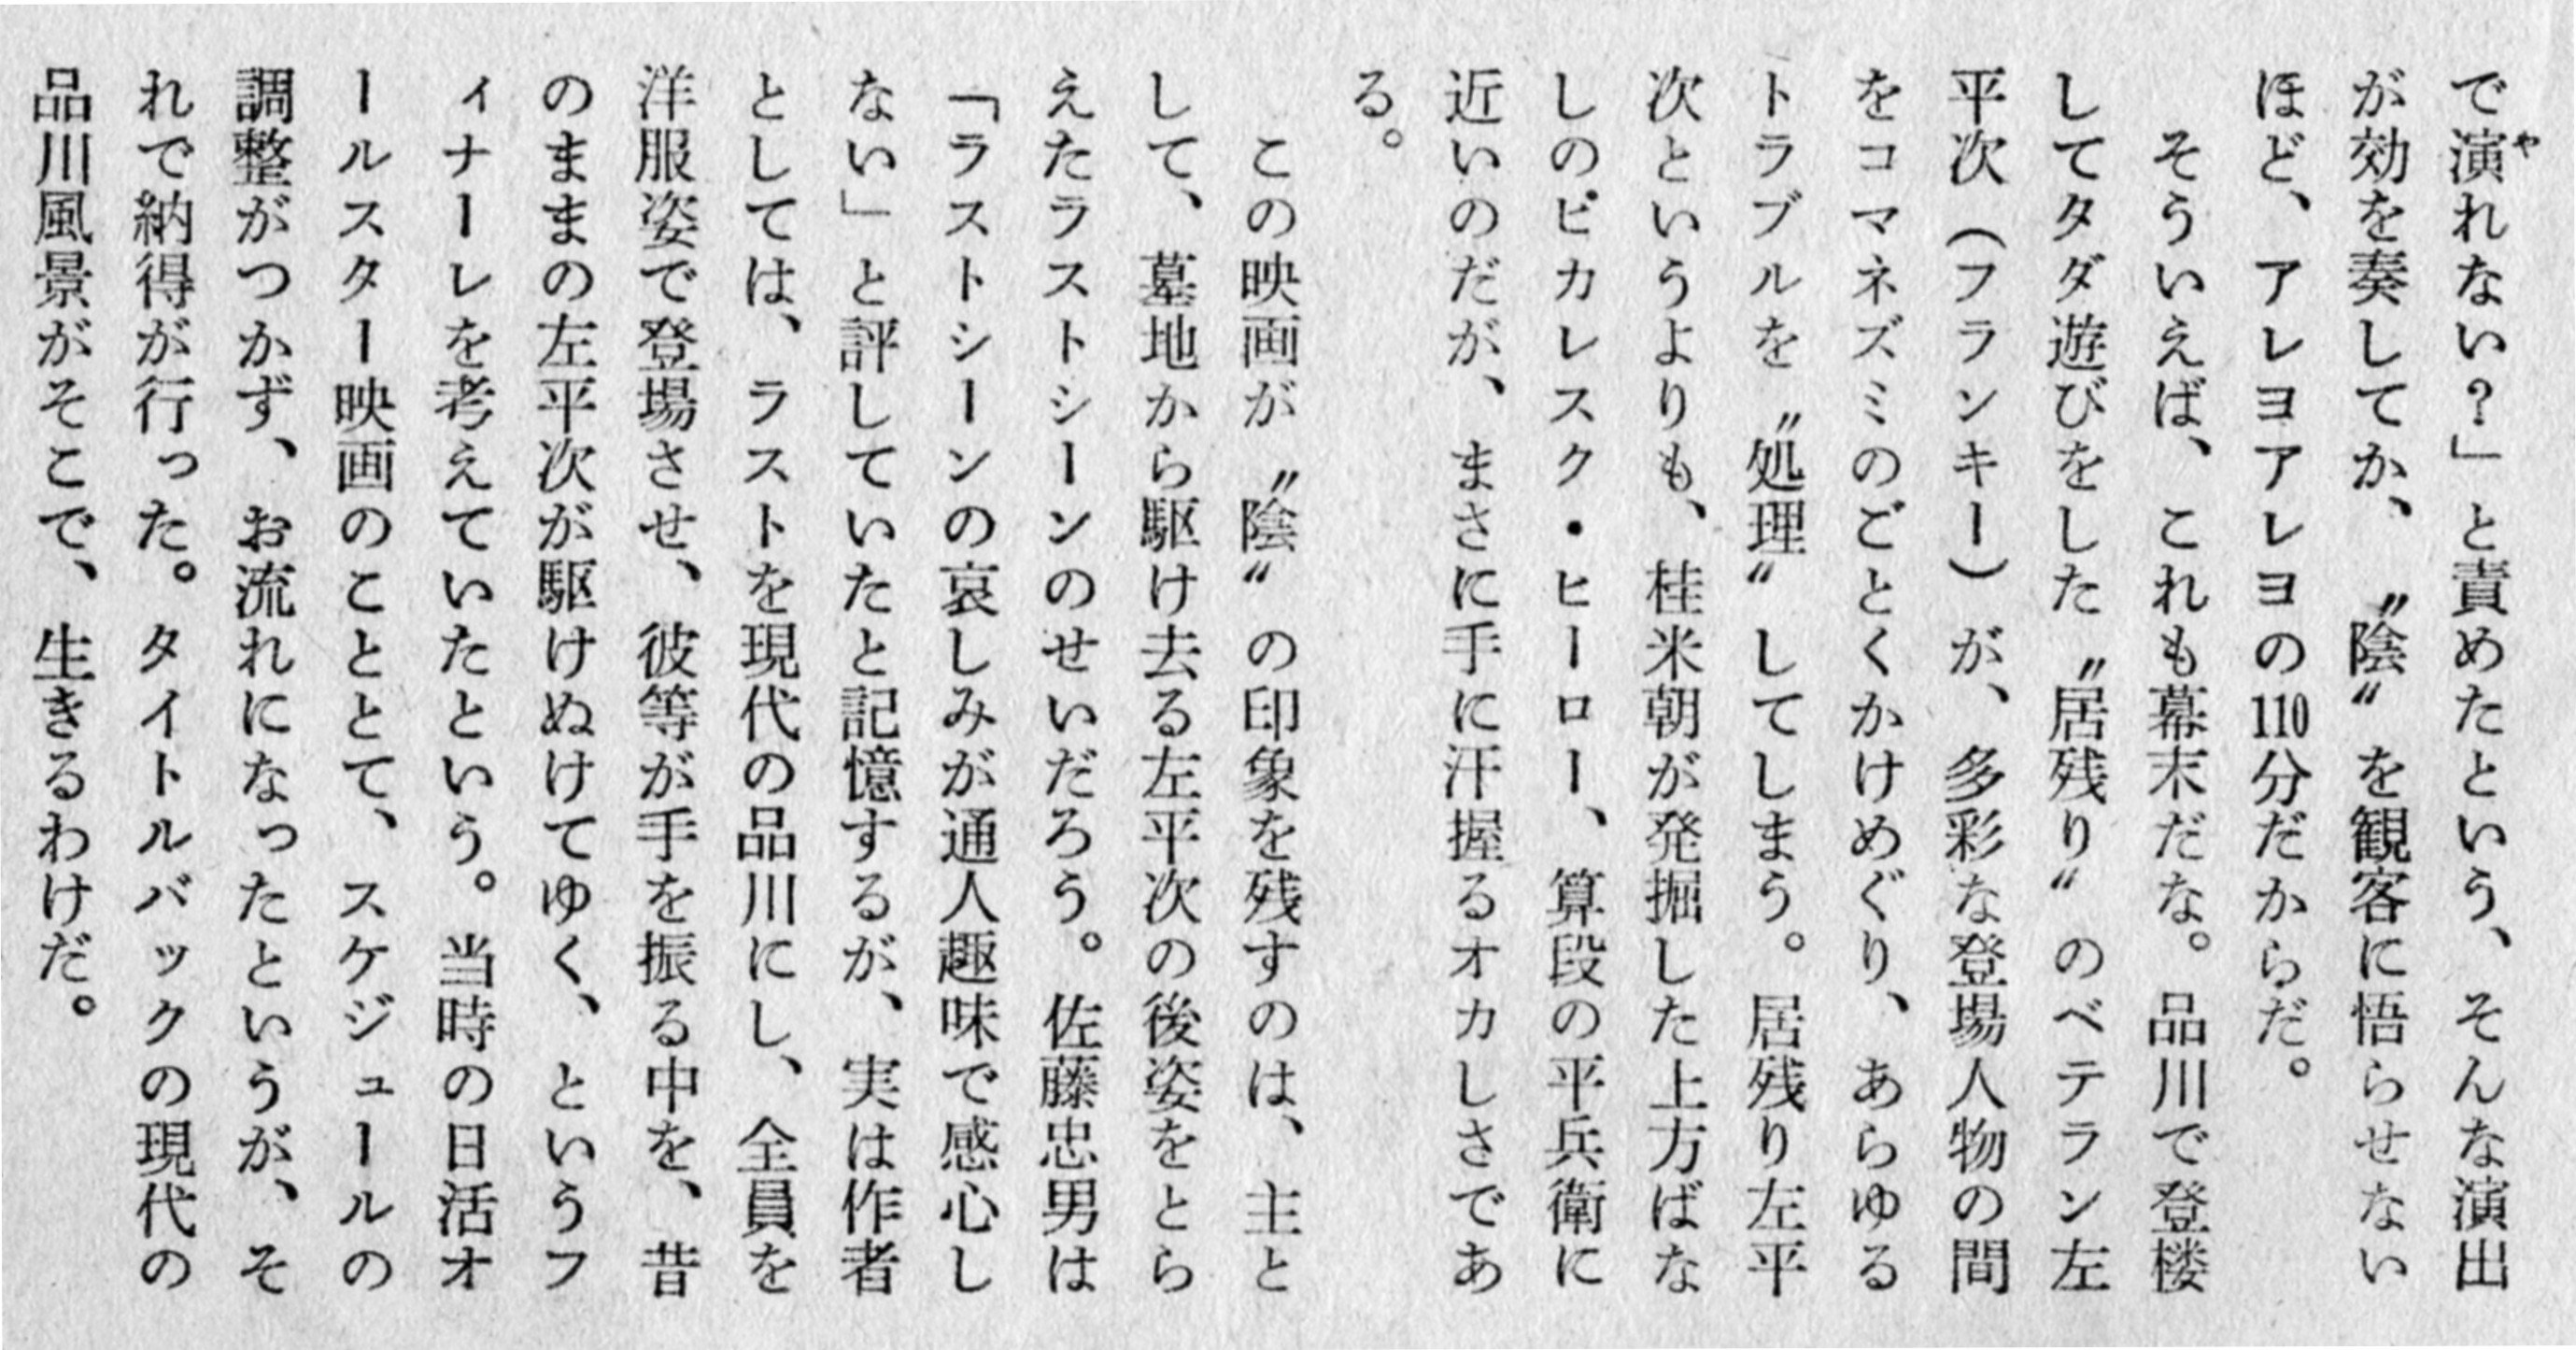 で演れない？」と責めたという、そんな演出
が効を奏してか、〝陰〟を観客に悟らせない
ほど、アレヨアレヨの110分だからだ。
そういえば、これも幕末だな。品川で登楼
してタダ遊びをした〝居残り〟のベテラン左
平次（フランキー）が、多彩な登場人物の間
をコマネズミのごとくかけめぐり、あらゆる
トラブルを〝処理〟してしまう。居残り左平
次というよりも、桂米朝が発掘した上方ばな
しのピカレスク・ヒーロー、算段の平兵衛に
近いのだが、まさに手に汗握るオカしさであ
る。
この映画が〝陰〟の印象を残すのは、主と
して、墓地から駆け去る左平次の後姿をとら
えたラストシーンのせいだろう。佐藤忠男は
「ラストシーンの哀しみが通人趣味で感心し
ない」と評していたと記憶するが、実は作者
としては、ラストを現代の品川にし、全員を
洋服姿で登場させ、彼等が手を振る中を、昔
のままの左平次が駆けぬけてゆく、というフ
ィナーレを考えていたという。当時の日活オ
ールスター映画のこととて、スケジュールの
調整がつかず、お流れになったというが、そ
れで納得が行った。タイトルバックの現代の
品川風景がそこで、生きるわけだ。